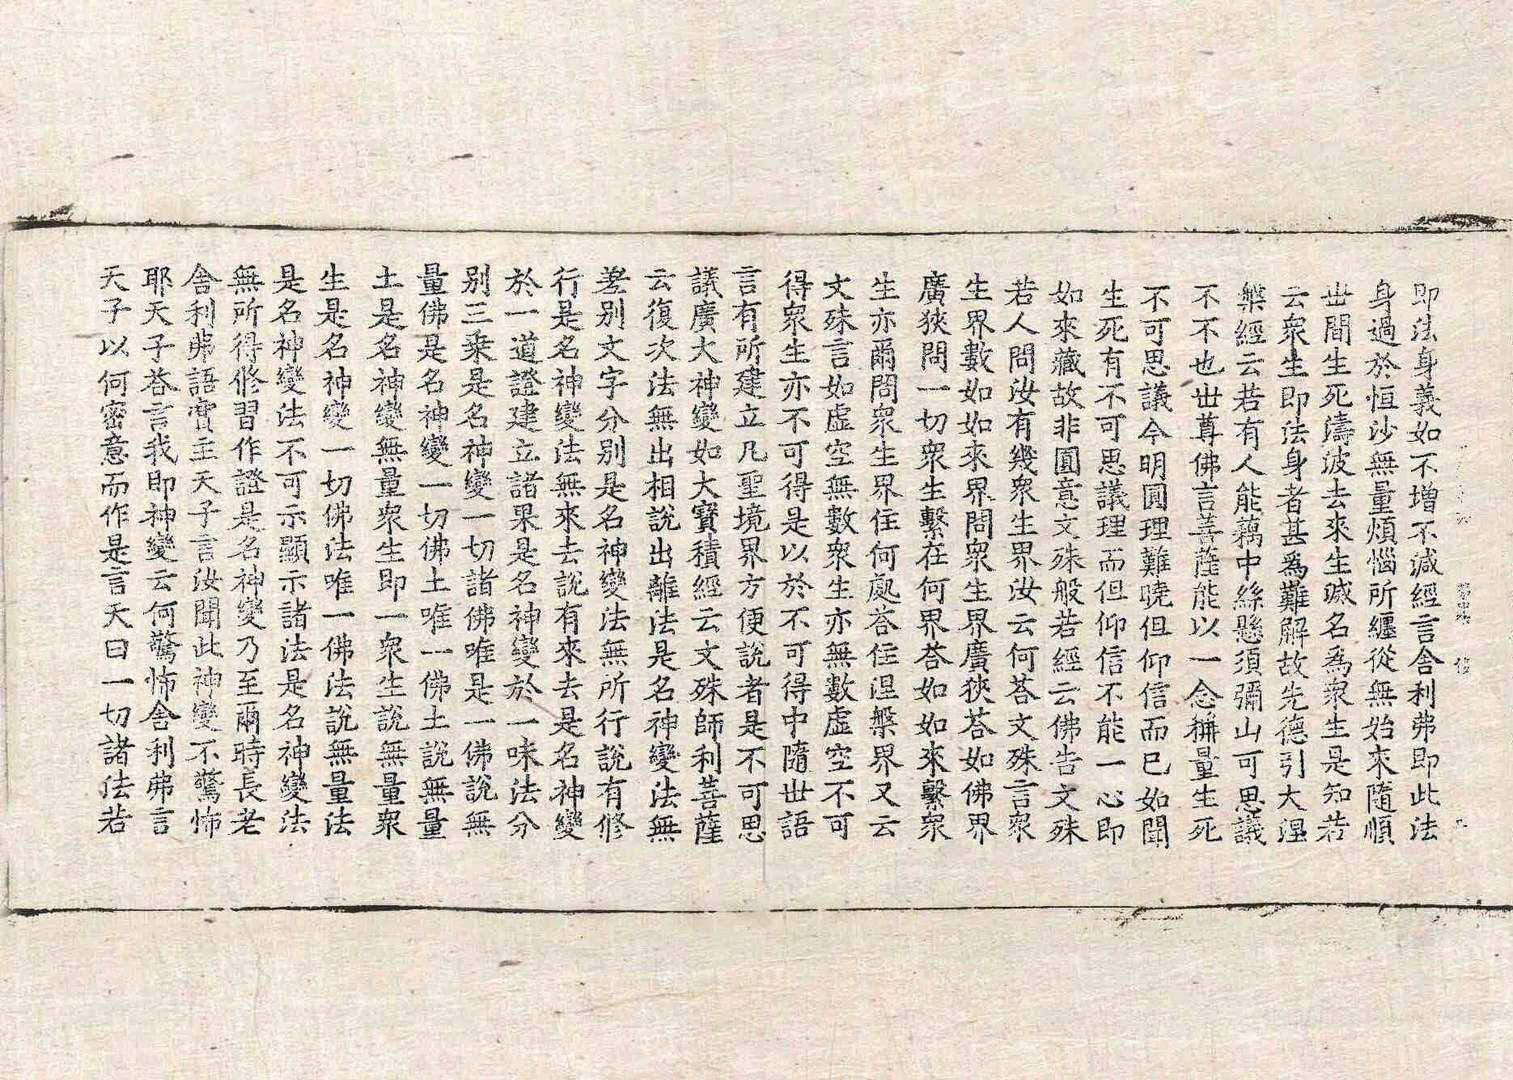 即法身義如不增不減經言舍利弗即此法
身過於恒沙無量煩惱所纏從無始來隨順
世間生死濤波去來生滅名爲衆生是知若
云衆生即法身者甚爲難解故先德引大涅
槃經云若有人能藕中絲懸須彌山可思議
不不也世尊佛言菩薩能以一念稱量生死
不可思議今明圓理難曉但仰信而已如聞
生死有不可思議理而但仰信不能一心即
如來藏故非圓意文殊般若經云佛告文殊
若人問汝有幾衆生界汝云何荅文殊言衆
生界數如如來界問衆生界廣狹荅如佛界
廣狹問一切衆生繫在何界荅如如來繫衆
生亦爾問衆生界住何處荅住涅槃界又云
文殊言如虛空無數衆生亦無數虛空不可
得衆生亦不可得是以於不可得中隨世語
言有所建立凡聖境界方便說者是不可思
議廣大神變如大寶積經云文殊師利菩薩
云復次法無出相說出離法是名神變法無
差别文字分别是名神變法無所行說有修
行是名神變法無來去說有來去是名神變
於一道證建立諸果是名神變於一味法分
别三乘是名神變一切諸佛唯是一佛說無
量佛是名神變一切佛土唯一佛土說無量
土是名神變無量衆生即一衆生說無量衆
生是名神變一切佛法唯一佛法說無量法
是名神變法不可示顯示諸法是名神變法
無所得修習作證是名神變乃至爾時長老
舍利弗語實主天子言汝聞此神變不驚怖
耶天子荅言我即神變云何驚怖舍利弗言
天子以何密意而作是言天曰一切諸法若